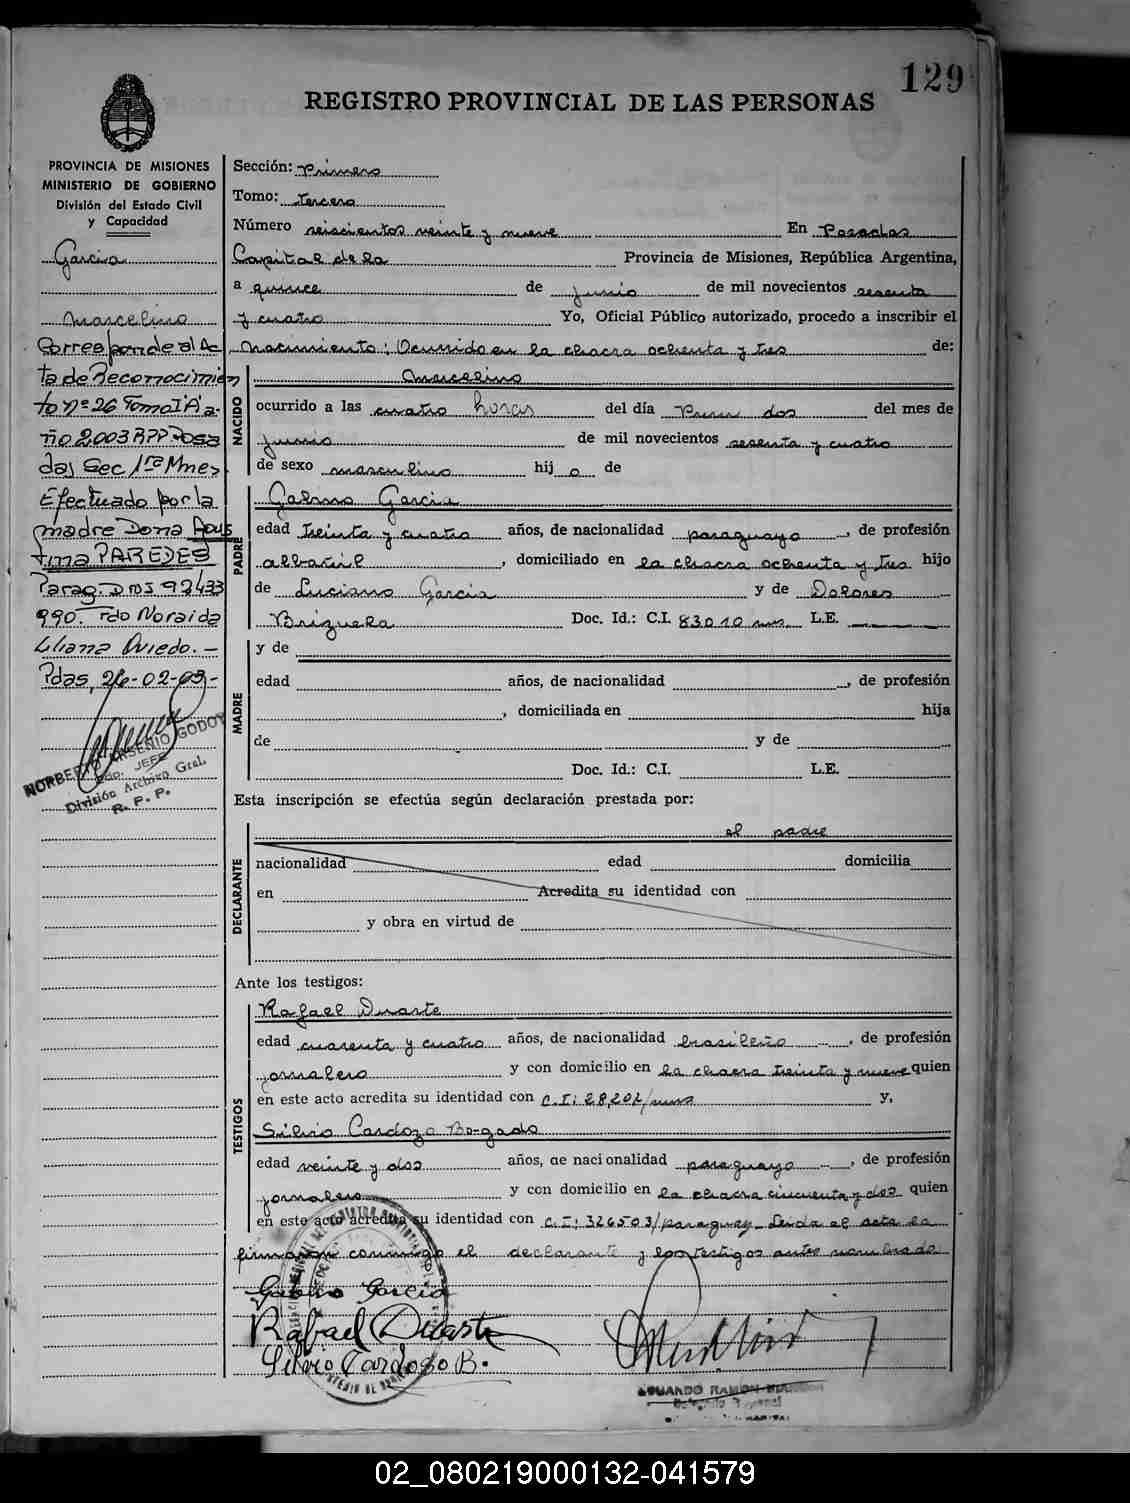 129
REGISTRO PROVINCIAL DE LAS PERSONAS
PROVINCIA DE MISIONES
MINISTERIO DE GOBIERNO
División del Estado Civil
y Capacidad
Garcia
Marcelino
Corresponde al Ac
ta de Reconocimien
to nº 26 Tomo I "A" a-
ño 2003 RPP Posa
das Sec 1ra Mnes
Efectuado por la
madre Dona Agus
tina PAREDES
Parag. DNI 92433
990. Fdo Noraida
Liliana Oviedo. -
Pdas, 26-02-03-
NORBERTO ARSENIO GODOY
JEFE
División Archivo Gral.
R. P. P.
Sección: Primero
Tomo: tercero
Número seiscientos veinte y nueve En Posadas
Capital de la Provincia de Misiones, República Argentina,
a quince de junio de mil novecientos sesenta
y cuatro Yo, Oficial Público autorizado, procedo a inscribir el
Nacimiento: Ocurrido en la chacra ochenta y tres de:
NACIDO
Marcelino
ocurrido a las cuatro horas del día dos del mes de
junio de mil novecientos sesenta y cuatro
de sexo masculino hij o de
PADRE
Garcia
edad treinta y cuatro años, de nacionalidad paraguayo, de profesión
albañil, domiciliado en la chacra ochenta y tres hijo
de Luciano Garcia y de Dolores
Brizuela Doc. Id.: C.I. 83010 mns. L.E.
MADRE
y de
edad años, de nacionalidad , de profesión
, domiciliada en hija
de y de
Doc. Id.: C.I. L.E.
Esta inscripción se efectúa según declaración prestada por:
el padre
DECLARANTE
nacionalidad edad domicilia
en Acredita su identidad con
y obra en virtud de
Ante los testigos:
TESTIGOS
Rafael Duarte
edad cuarenta y cuatro años, de nacionalidad brasileño, de profesión
jornalero y con domicilio en la chacra treinta y nueve quien
en este acto acredita su identidad con C.I: 28,202/mns y,
Silvio Cardozo Bogado
edad veinte y dos años, de nacionalidad paraguayo, de profesión
jornalero y con domicilio en la chacra cincuenta y dos quien
en este acto acredita su identidad con C.I: 326503/paraguay_ Leida el acta la
firmaron conmigo el declarante y los testigos antes nombrado
Garcia
Rafael Duarte
Silvio Cardozo B.
02_080219000132-041579